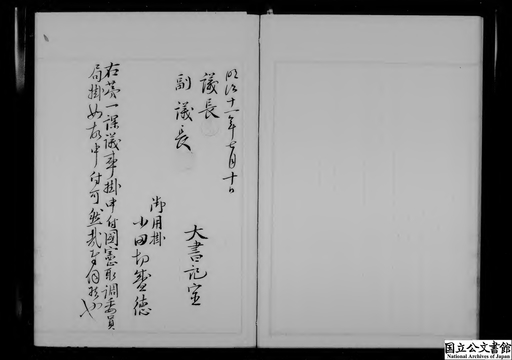 明治十一年七月十日
議長
副議長
大書記室
御用掛
小田切盛徳
右第一課議事掛申付國憲取調委員
局掛如故申付可然哉相伺候也
国立公文書館
National Archives of Japan